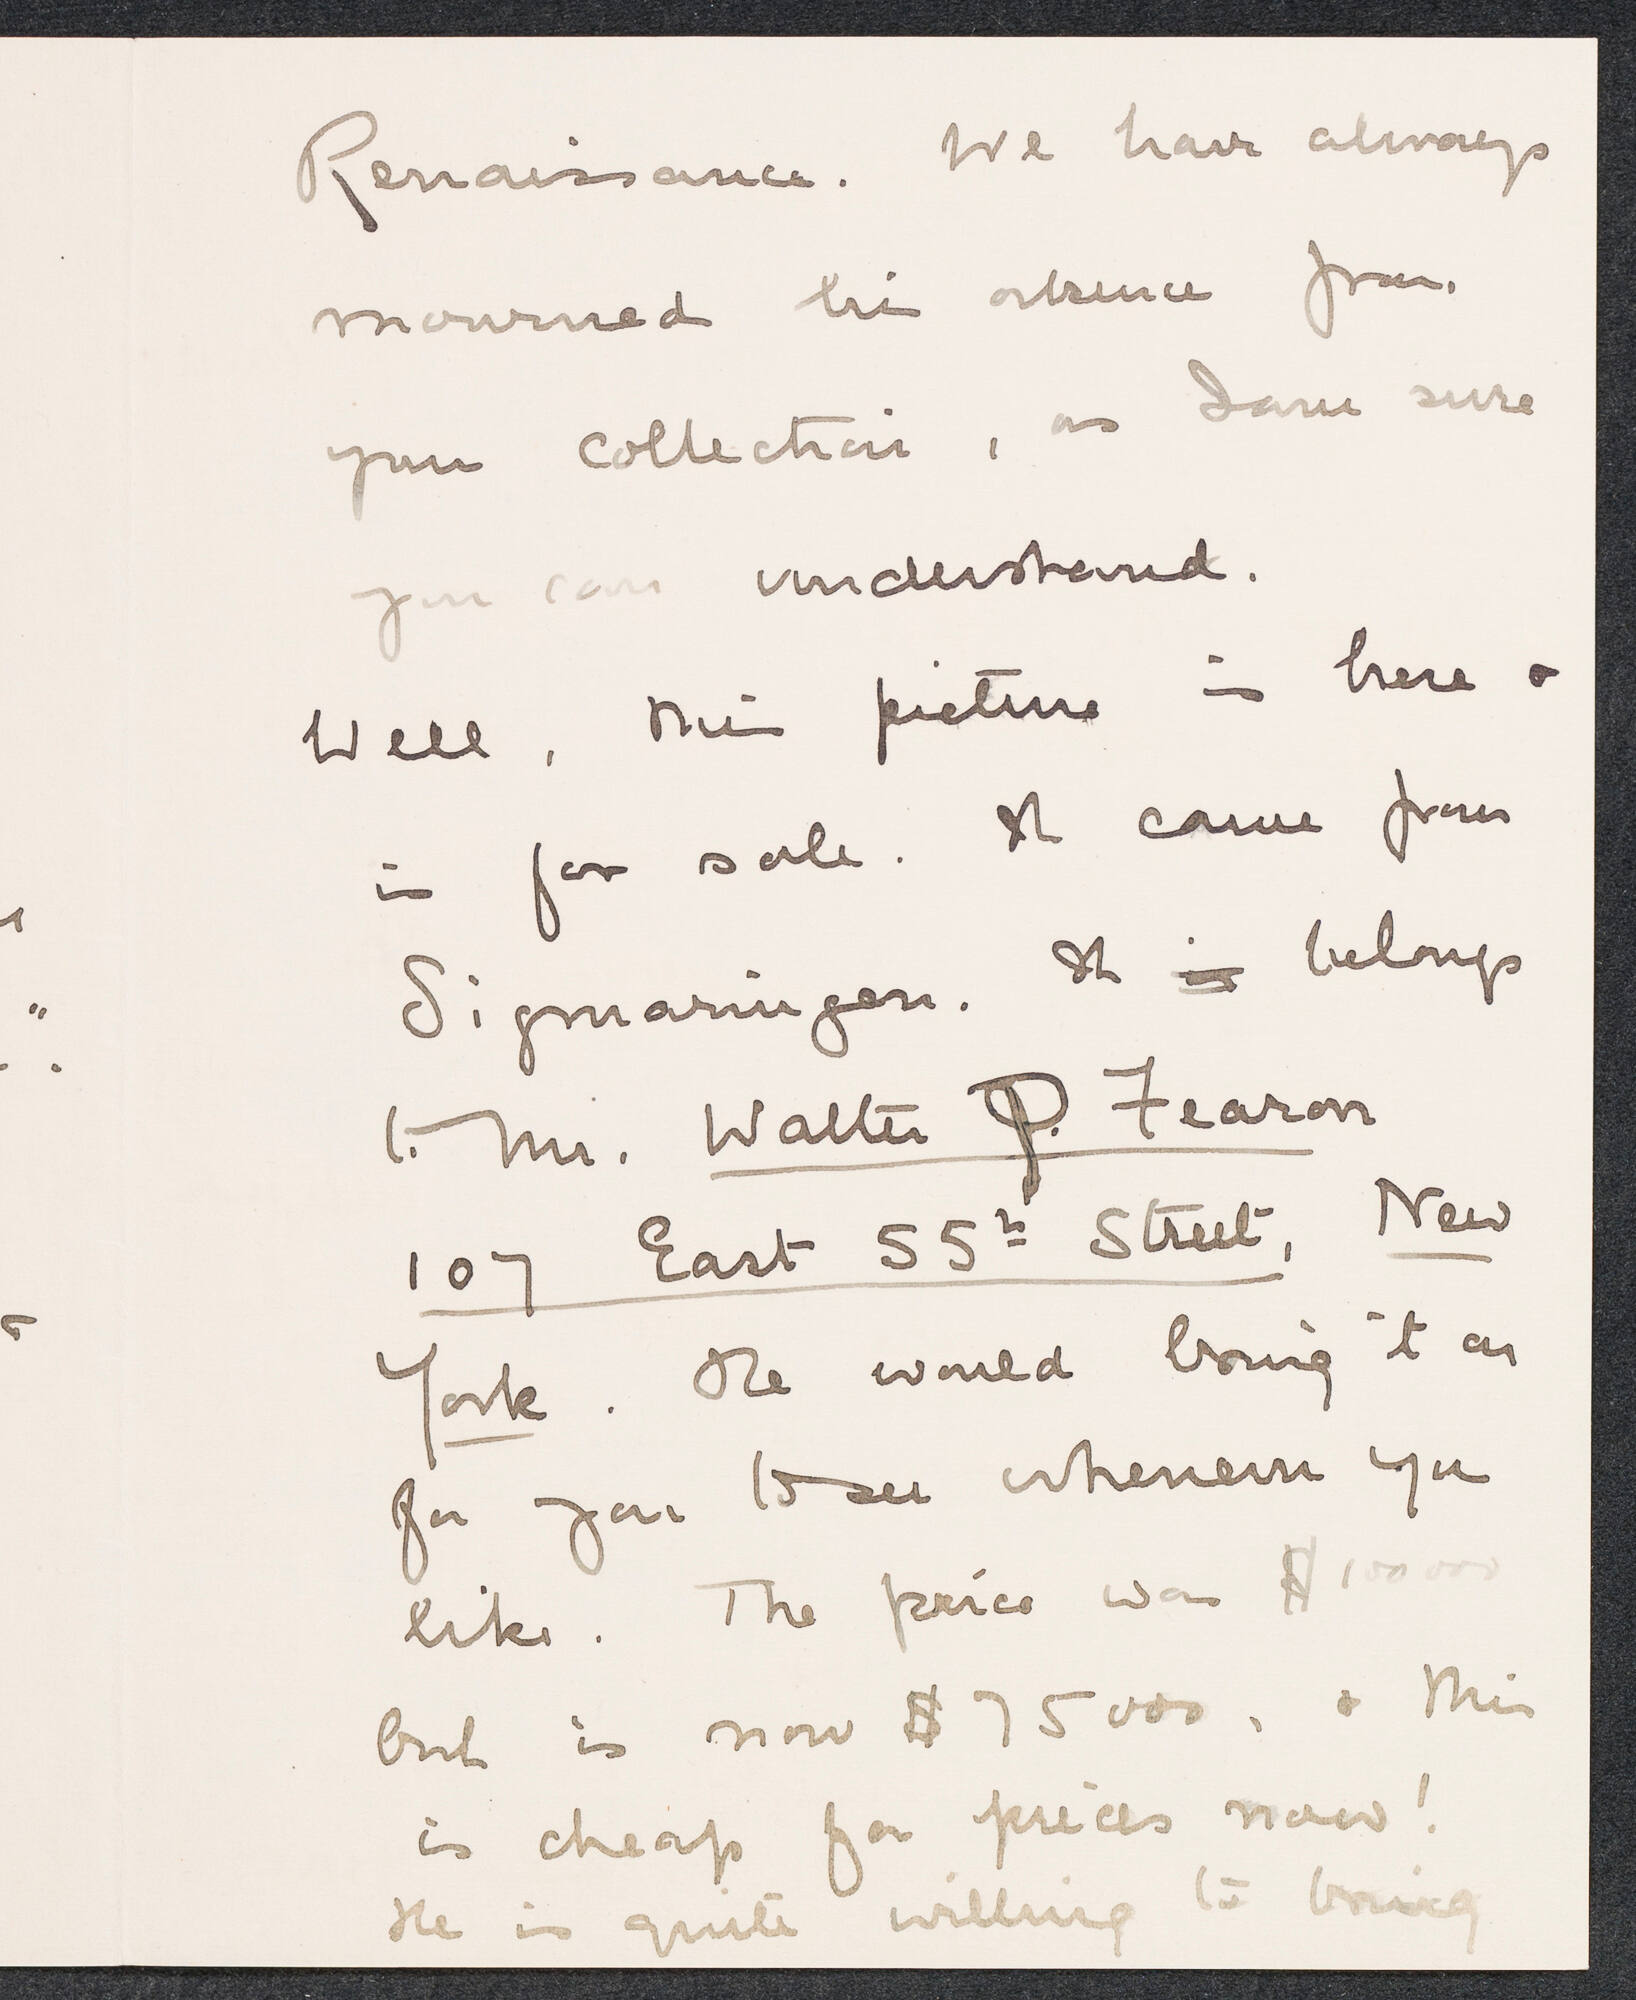 Renaissance. We have always
mourned his absence from
your collection, as I am sure
you can understand.
Well, this picture is here &
is for sale. It came from
Sigmaringen. It is belongs
to Mr. Walter P. Fearon
107 East 55th Street, New
York. He would bring it on
for you to see whenever you
like. The price was $100000
but is now $75000, & this
is cheap for prices now!
He is quite willing to bring